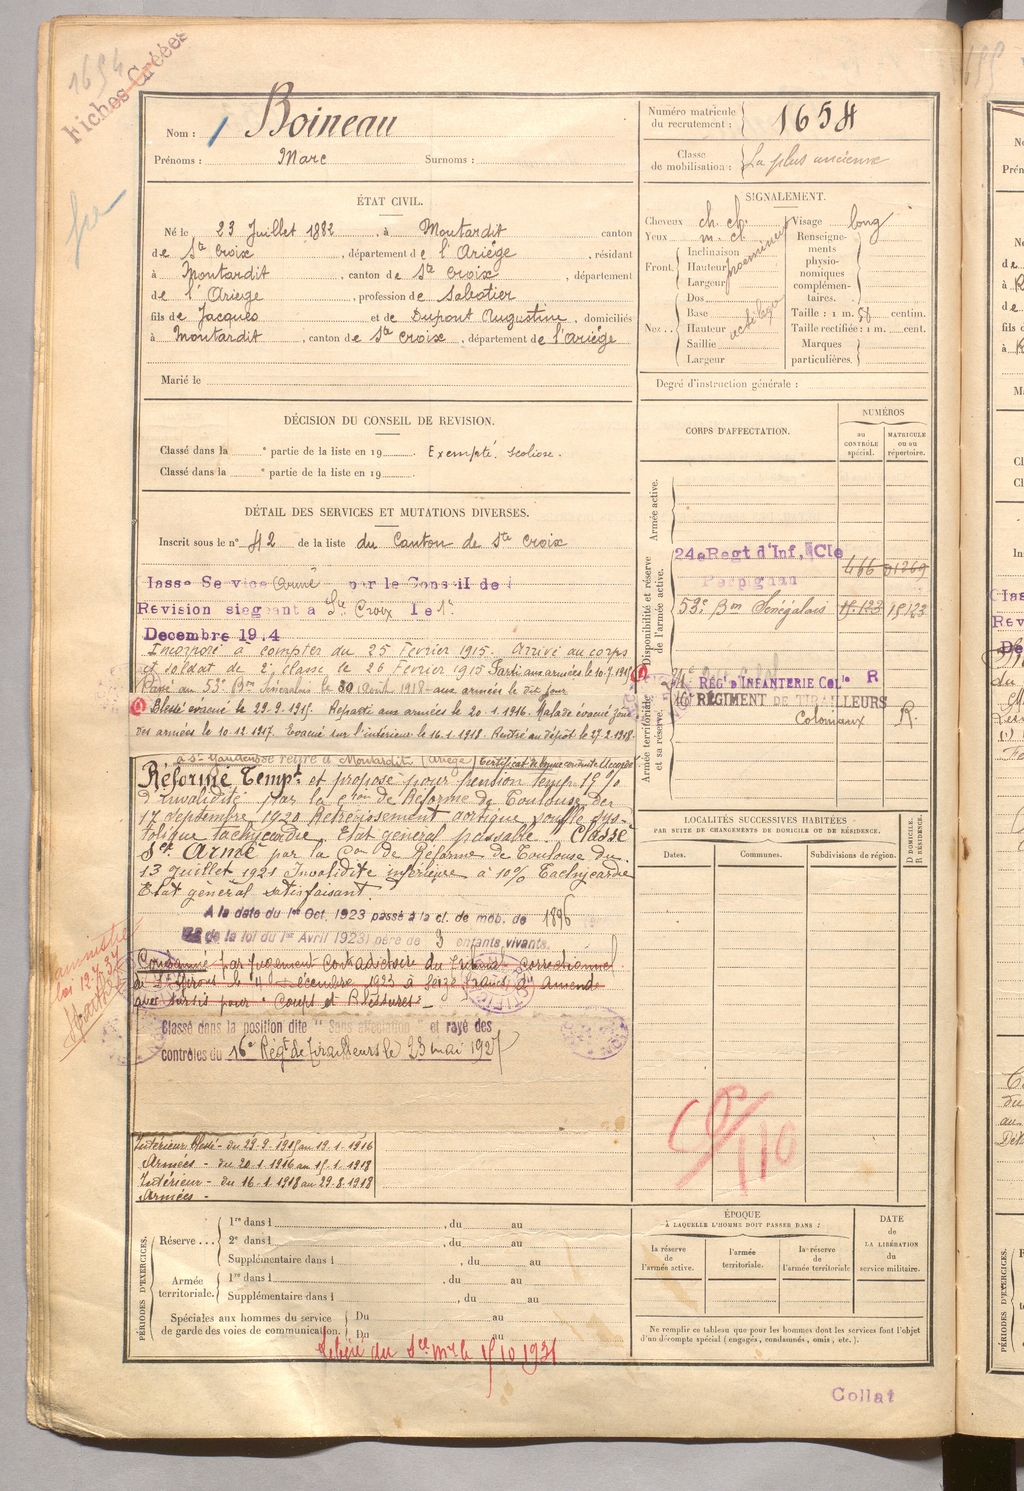 1654
Fiches Créées
Nom : Boineau
Prénoms : Marc Surnoms :
Numéro matricule du recrutement : 1654
Classe de mobilisation : La plus ancienne
ÉTAT CIVIL.
Né le 23 Juillet 1882, à Montardit canton
de Ste Croix, département de l'Ariège, résidant
à Montardit, canton de Ste Croix, département
de l'Ariege, profession de Sabotier
fils de Jacques et de Dupont Augustine, domiciliés
à Montardit, canton de Ste Croix, département de l'Ariège
Marié le
SIGNALEMENT.
Cheveux ch. ch. Visage long
Yeux m. cl.
Front. Inclinaison
Hauteur proeminent
Largeur
Nez Dos
Base
Hauteur
Saillie
Largeur
Renseignements physionomiques complémentaires.
Taille : 1 m. 58 centim.
Taille rectifiée : 1 m. cent.
Marques particulières.
Degré d'instruction générale :
DÉCISION DU CONSEIL DE REVISION.
Classé dans la e partie de la liste en 19 Exempté. scoliose.
Classé dans la e partie de la liste en 19
DÉTAIL DES SERVICES ET MUTATIONS DIVERSES.
Inscrit sous le n° 42 de la liste du Canton de Ste Croix
lasse Service Armé par le Conseil de
Revision siegeant à Ste Croix le 1r
Decembre 1914
Incorporé à compter du 25 Février 1915. Arrivé au corps
et soldat de 2e classe le 26 Février 1915 Parti aux armées le 10.7.1915
Passé au 53e Bon Sénégalais le 30 Août 1918 aux armées le dit jour
Blessé évacué le 29.9.1915. Reparti aux armées le 20.1.1916. Malade évacué zone
des armées le 10.12.1917. Evacué sur l'intérieur le 16.1.1918. Rentré au dépôt le 27.2.1918
à St Gaudens se retire à Montardit (Ariège) Certificat de bonne conduite Accordé
Réformé Tempre et proposé pour pension temp. 15 %
d'invalidité par la Cion de Réforme de Toulouse du
17 septembre 1920 Rétrécissement aortique, souffle sys-
tolique tachycardie. Etat général passable. Classé
Sce Armé par la Con de Réforme de Toulouse du
13 Juillet 1921 Invalidité inférieure à 10% Tachycardie
Etat général satisfaisant.
A la date du 1er Oct. 1923 passé à la cl. de mob. de 1896
de la loi du 1er Avril 1923) père de 3 enfants vivants.
Condamné par jugement Contradictoire du Tribunal correctionnel
de St Girons le 4 Décembre 1923 à seize francs d'amende
avec sursis pour "Coups et Blessures"
amnistié
loi 12.7.37
Classé dans la position dite "Sans affectation" et rayé des
contrôles du 16e Régt de Tirailleurs le 23 mai 1927
Intérieur Blessé - du 29.9.1915 au 19.1.1916
Armées - du 20.1.1916 au 15.1.1918
Intérieur - du 16.1.1918 au 29.8.1918
Armées -
CORPS D'AFFECTATION.
NUMÉROS
au CONTRÔLE spécial.
MATRICULE ou au répertoire.
Armée active.
Disponibilité et réserve de l'armée active.
24e Regt d'Inf, Cle 466 21269
Perpignan
53e Bon Sénégalais 15.123 15123
Armée territoriale et sa réserve.
RÉGt D'INFANTERIE COLle R
16e RÉGIMENT DE TIRAILLEURS
Coloniaux R.
LOCALITÉS SUCCESSIVES HABITÉES
PAR SUITE DE CHANGEMENTS DE DOMICILE OU DE RÉSIDENCE.
Dates. Communes. Subdivisions de région. D DOMICILE. R RÉSIDENCE.
PÉRIODES D'EXERCICES.
Réserve... 1re dans l , du au
2e dans l , du au
Supplémentaire dans l , du au
Armée territoriale. 1re dans l , du au
Supplémentaire dans l , du au
Spéciales aux hommes du service de garde des voies de communication. Du au
Du au
Libéré du Sce Mre le 15 10 1931
ÉPOQUE
À LAQUELLE L'HOMME DOIT PASSER DANS :
la réserve de l'armée active.
l'armée territoriale.
la réserve de l'armée territoriale
DATE de LA LIBÉRATION du service militaire.
Ne remplir ce tableau que pour les hommes dont les services font l'objet
d'un décompte spécial (engagés, condamnés, omis, etc.).
Collat